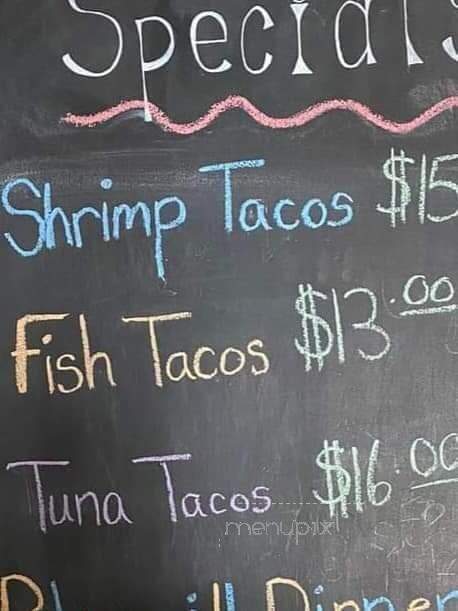 Specials
Shrimp Tacos $15
Fish Tacos $13.00
Tuna Tacos $16.00
menupix
Dinner